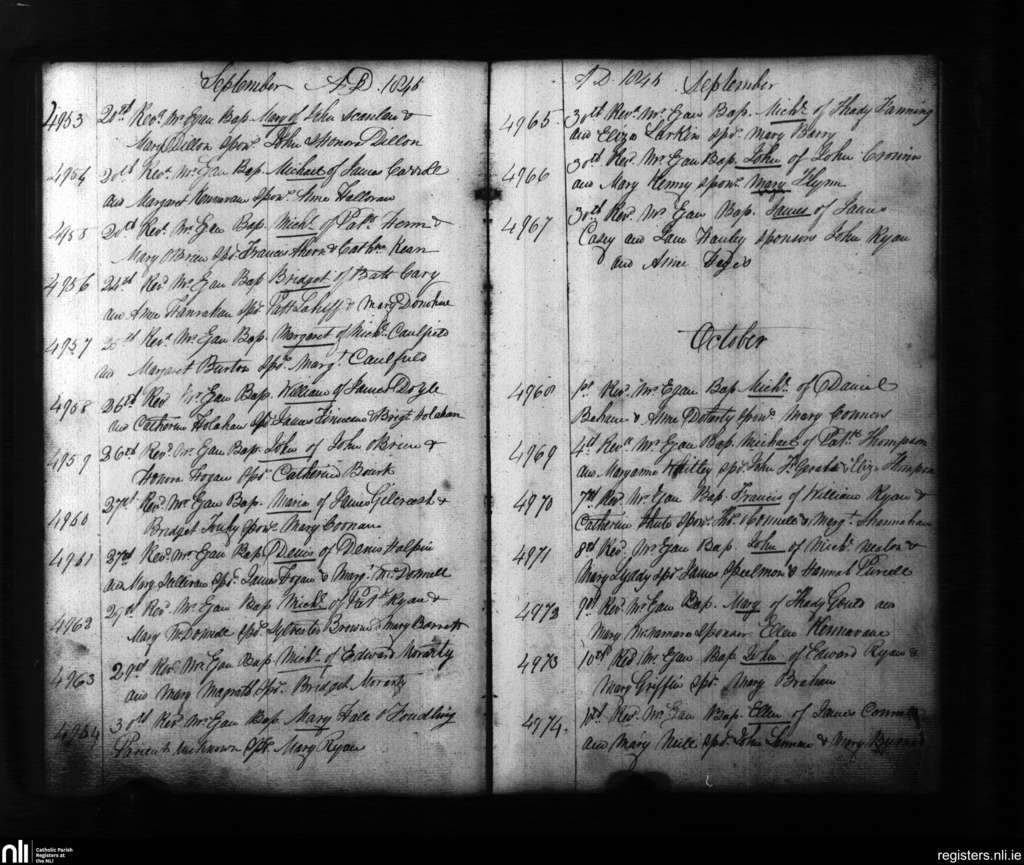 September AD 1845
4953 20th Revd. Mr. Egan Bap. Mary of John Scanlan &
Mary Dillon Sponr. John & Honora Dillon
4954 20th Revd. Mr. Egan Bap. Michael of James
and Margaret Sponr. Anne Halloran
20th Revd. Mr. Egan Bap. Michl. of Patk.
Mary O'Brien Spr. Francis Ahern & Cathe. Kean
4956 24th Revd. Mr. Egan Bap. Bridget of Batt Cary
and Anne Hanrahan Spr. Patt Lahiff & Mary Donohue
4957 Revd. Mr. Egan Bap. Margaret of Michl. Caulfield
and Margaret Burton Spr. Margt. Caulfield
4958 26th Revd. Mr. Egan Bap. William of James Doyle
and Catherine Holahan Spr. James & Brigt. Holahan
4959 26th Revd. Mr. Egan Bap. John of John O'Brien &
Honora Hogan Spr. Catherine Bourk
4960 27th Revd. Mr. Egan Bap. Maria of James &
Bridget Sponr. Mary Noonan
4961 27th Revd. Mr. Egan Bap. Denis of Denis Halpin
and Mary Sullivan Spr. James Hogan & Margt. McDonnell
4962 29th Revd. Mr. Egan Bap. Michl. of Patk. Ryan &
Mary Spr. Sylvester Browne & Mary Barrett
4963 29th Revd. Mr. Egan Bap. Michl. of Edward Morarty
and Mary Magrath Spr. Bridget Morarty
4964 30th Revd. Mr. Egan Bap. Mary Hale Foundling
Parents unknown Spr. Mary Ryan
AD 1845 September
4965 30th Revd. Mr. Egan Bap. Michl. of Thady Fanning
and Eliza Larkin Spr. Mary Barry
4966 30th Revd. Mr. Egan Bap. John of John Cronin
and Mary Kenny Sponr. Mary Flynn
4967 30th Revd. Mr. Egan Bap. James of James
Casey and Jane Hanley Sponsors John Ryan
and Anne
October
4968 1st Revd. Mr. Egan Bap. Michl. of Daniel
& Anne Doharty Sponr. Mary Conners
4969 4th Revd. Mr. Egan Bap. Michael of Patk. Thompson
and Maryanne Spr. John & Eliza Thompson
4970 7th Revd. Mr. Egan Bap. Francis of William Ryan &
Catherine Sponr. Ths. & Margt. Shannahan
4971 8th Revd. Mr. Egan Bap. John of Michl. Nealon &
Mary Lyddy Spr. James & Hannah Purcell
4972 9th Revd. Mr. Egan Bap. Mary of Thady Gould and
Mary McNamara Sponsor Ellen
4973 10th Revd. Mr. Egan Bap. John of Edward Ryan &
Mary Griffin Spr. Mary
4974. Revd. Mr. Egan Bap. Ellen of James
and Mary Spr. John & Mary
nli
Catholic Parish
Registers at
the NLI
registers.nli.ie